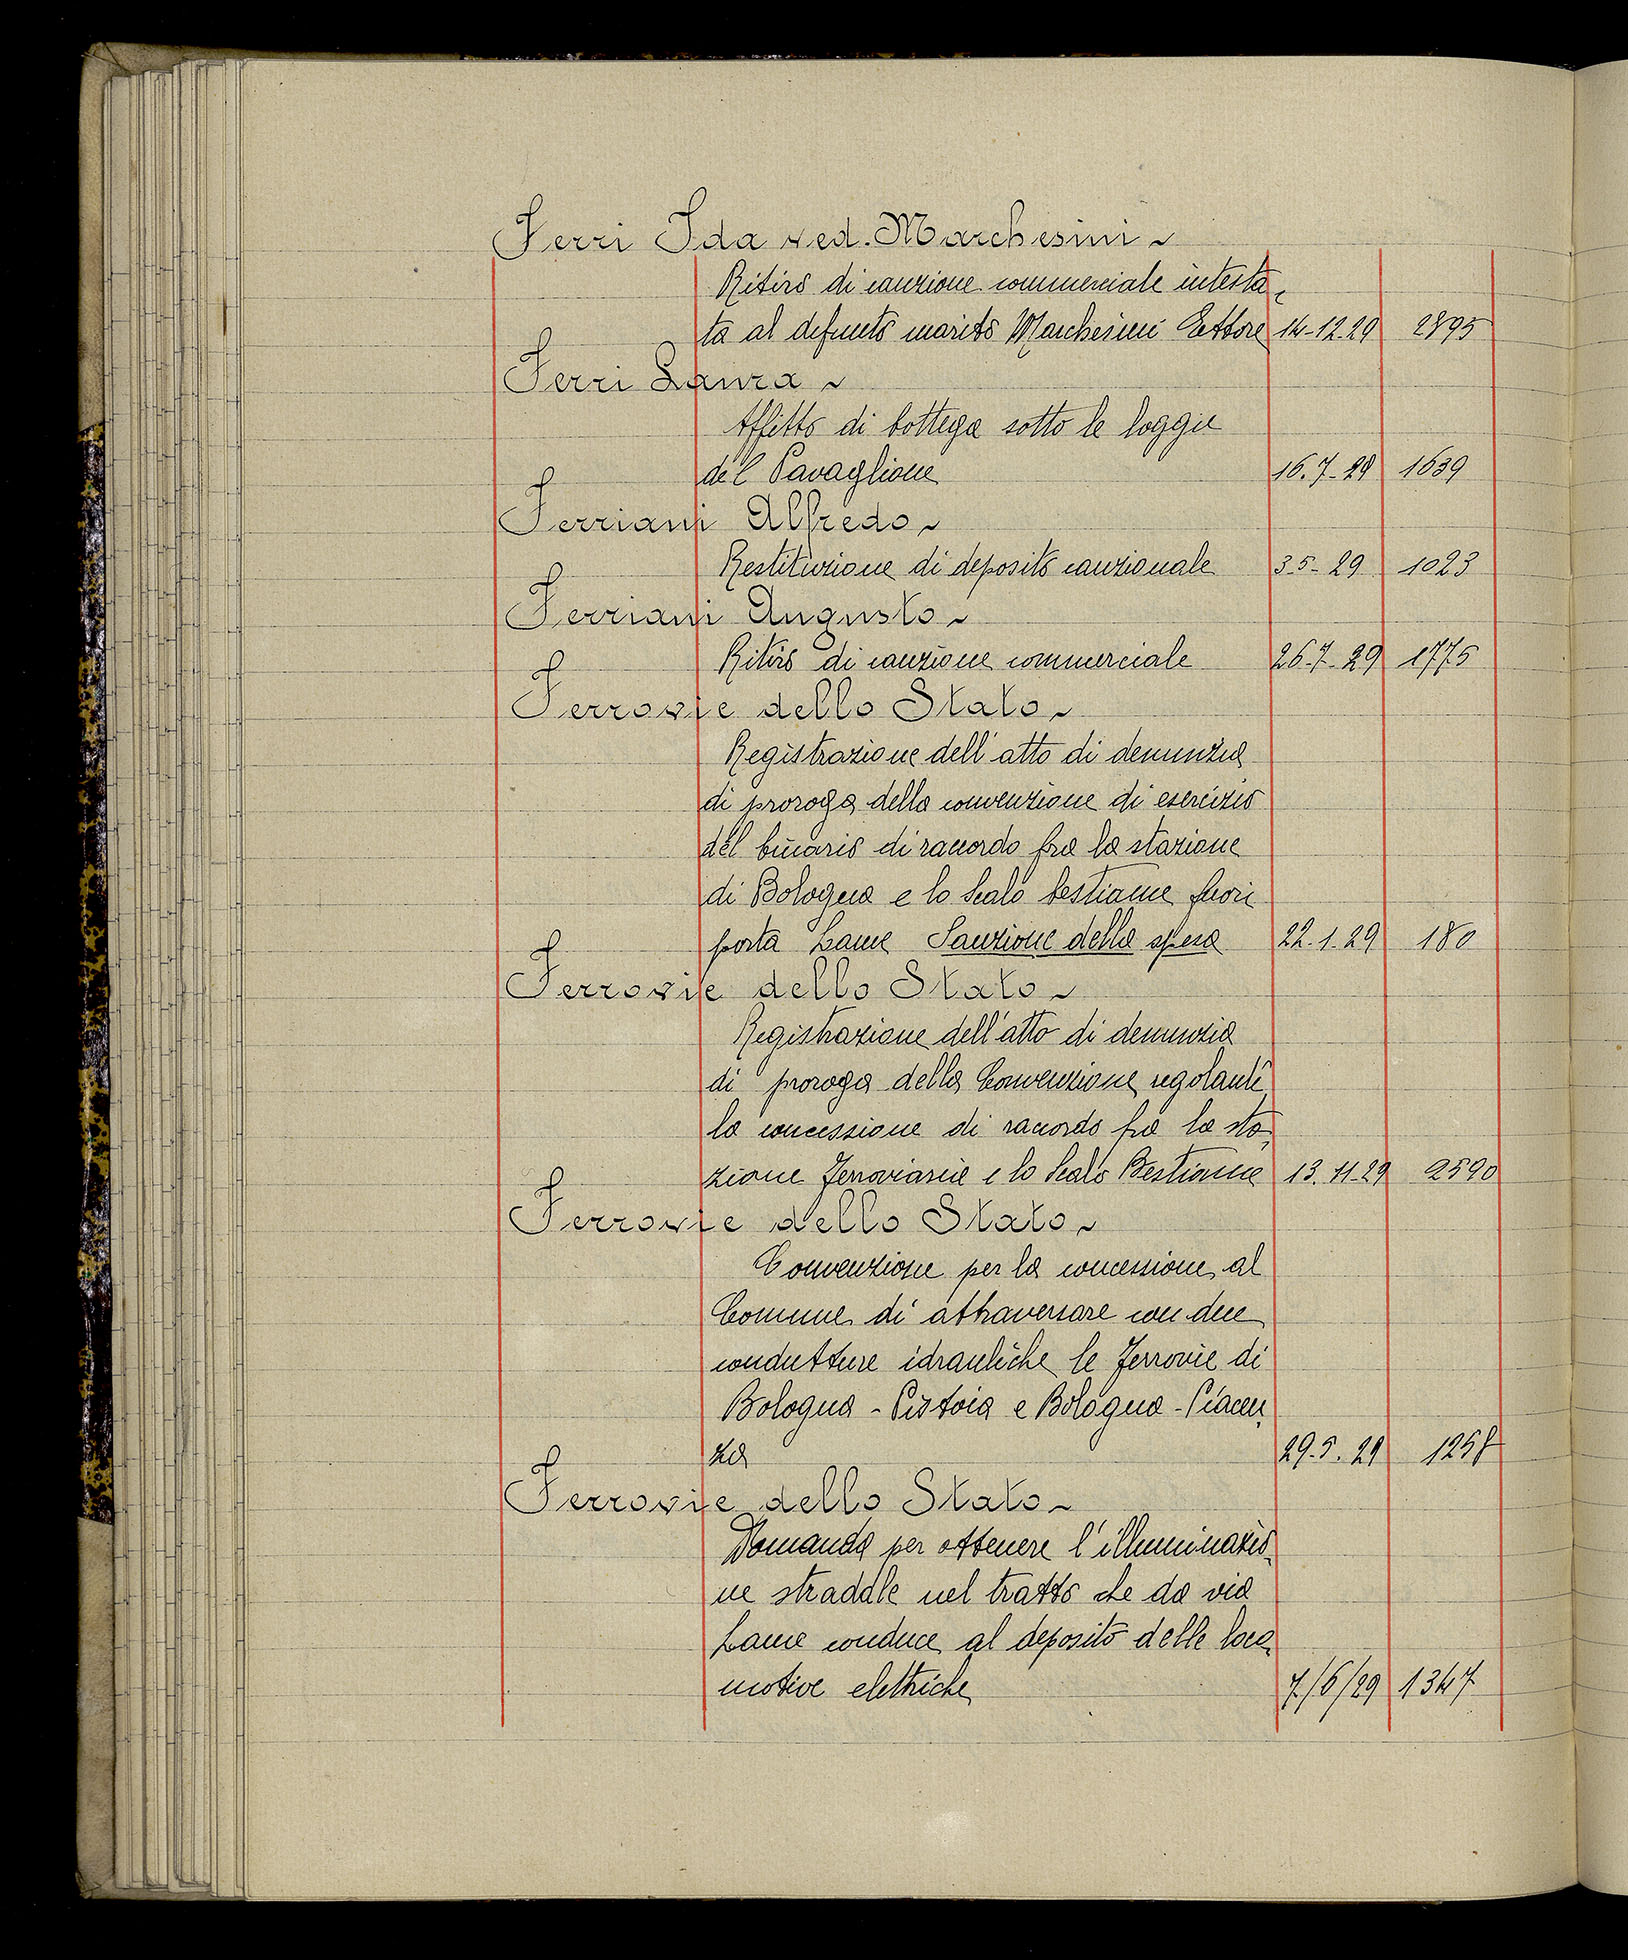 Ferri Ida ved. Marchesini ~
Ritiro di cauzione commerciale intesta-
ta al defunto marito Marchesini Ettore 14-12-29 2895
Ferri Laura ~
Affitto di bottega sotto le loggie
del Pavaglione 16.7-29 1639
Ferriani Alfredo ~
Restituzione di deposito cauzionale 3-5-29 1023
Ferriani Augusto ~
Ritiro di cauzione commerciale 26-7-29 1775
Ferrovie dello Stato ~
Registrazione dell'atto di denunzia
di proroga della convenzione di esercizio
del binario di raccordo fra la stazione
di Bologna e lo scalo bestiame fuori
porta Lame Sanzione della spesa 22-1-29 180
Ferrovie dello Stato ~
Registrazione dell'atto di denunzia
di proroga della Convenzione regolante
la concessione di raccordo fra la sta-
zione Ferroviaria e lo Scalo Bestiame 13.11-29 2590
Ferrovie dello Stato ~
Convenzione per la concessione al
Comune di attraversare con due
condutture idrauliche le Ferrovie di
Bologna - Pistoia e Bologna - Piacen-
za 29-5-29 1258
Ferrovie dello Stato ~
Domanda per ottenere l'illuminazio-
ne stradale nel tratto che da via
Lame conduce al deposito delle loco-
motive elettriche 7/6/29 1347